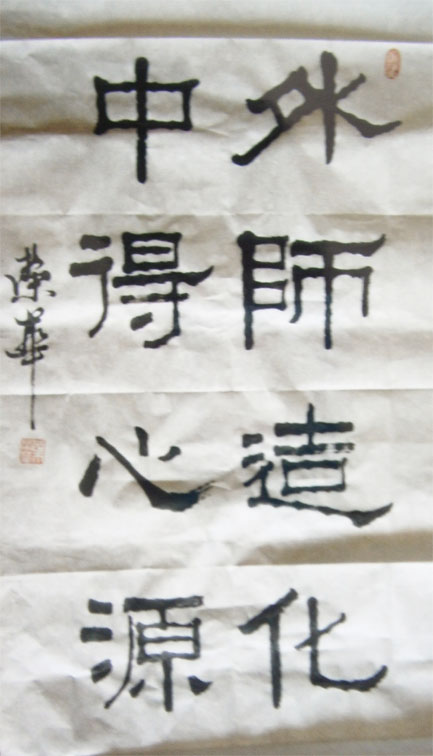 外師造化
中得心源
榮華